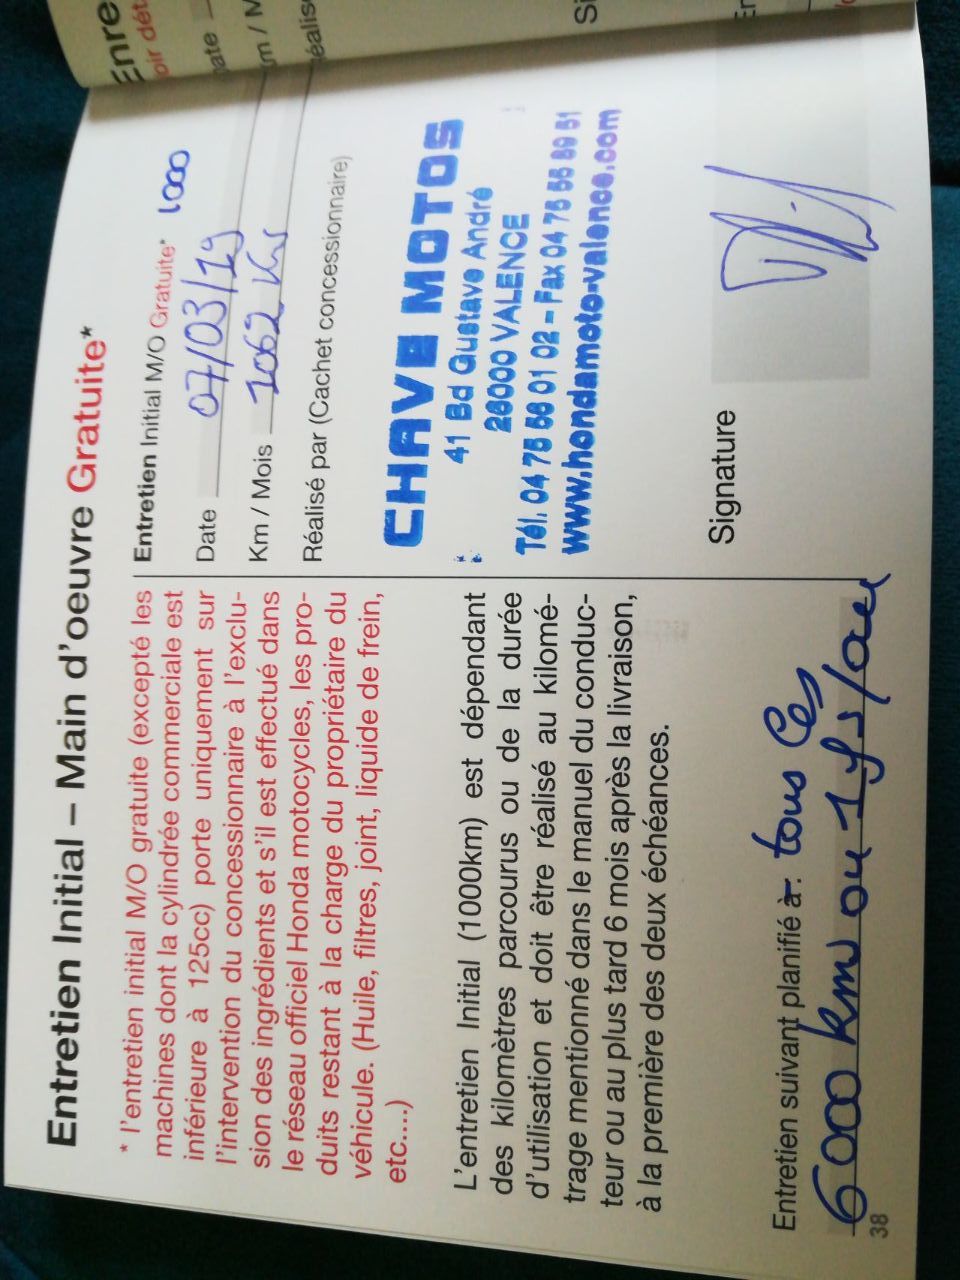 Entretien Initial – Main d'oeuvre Gratuite*
* l'entretien initial M/O gratuite (excepté les
machines dont la cylindrée commerciale est
inférieure à 125cc) porte uniquement sur
l'intervention du concessionnaire à l'exclu-
sion des ingrédients et s'il est effectué dans
le réseau officiel Honda motocycles, les pro-
duits restant à la charge du propriétaire du
véhicule. (Huile, filtres, joint, liquide de frein,
etc....)
L'entretien Initial (1000km) est dépendant
des kilomètres parcourus ou de la durée
d'utilisation et doit être réalisé au kilomé-
trage mentionné dans le manuel du conduc-
teur ou au plus tard 6 mois après la livraison,
à la première des deux échéances.
Entretien suivant planifié à: tous les
6000 km ou 1 fs/an
38
Entretien Initial M/O Gratuite* 1000
Date 07/03/19
Km / Mois 1062 Km
Réalisé par (Cachet concessionnaire)
CHAVE MOTOS
41 Bd Gustave André
26000 VALENCE
Tél. 04 75 56 01 02 - Fax 04 75 56 89 51
www.hondamoto-valence.com
Signature